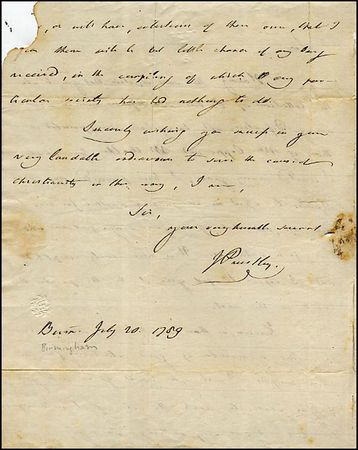 , or will have, collections of their own, that I
fear there will be but little chance of any being
received, in the compiling of which any par-
ticular society has had nothing to do.
Sincerely wishing you success in your
very laudable endeavours to serve the cause of
christianity in this way, I am,
Sir,
your very humble servant
J Priestley.
Birm. July 20. 1789
Birmingham